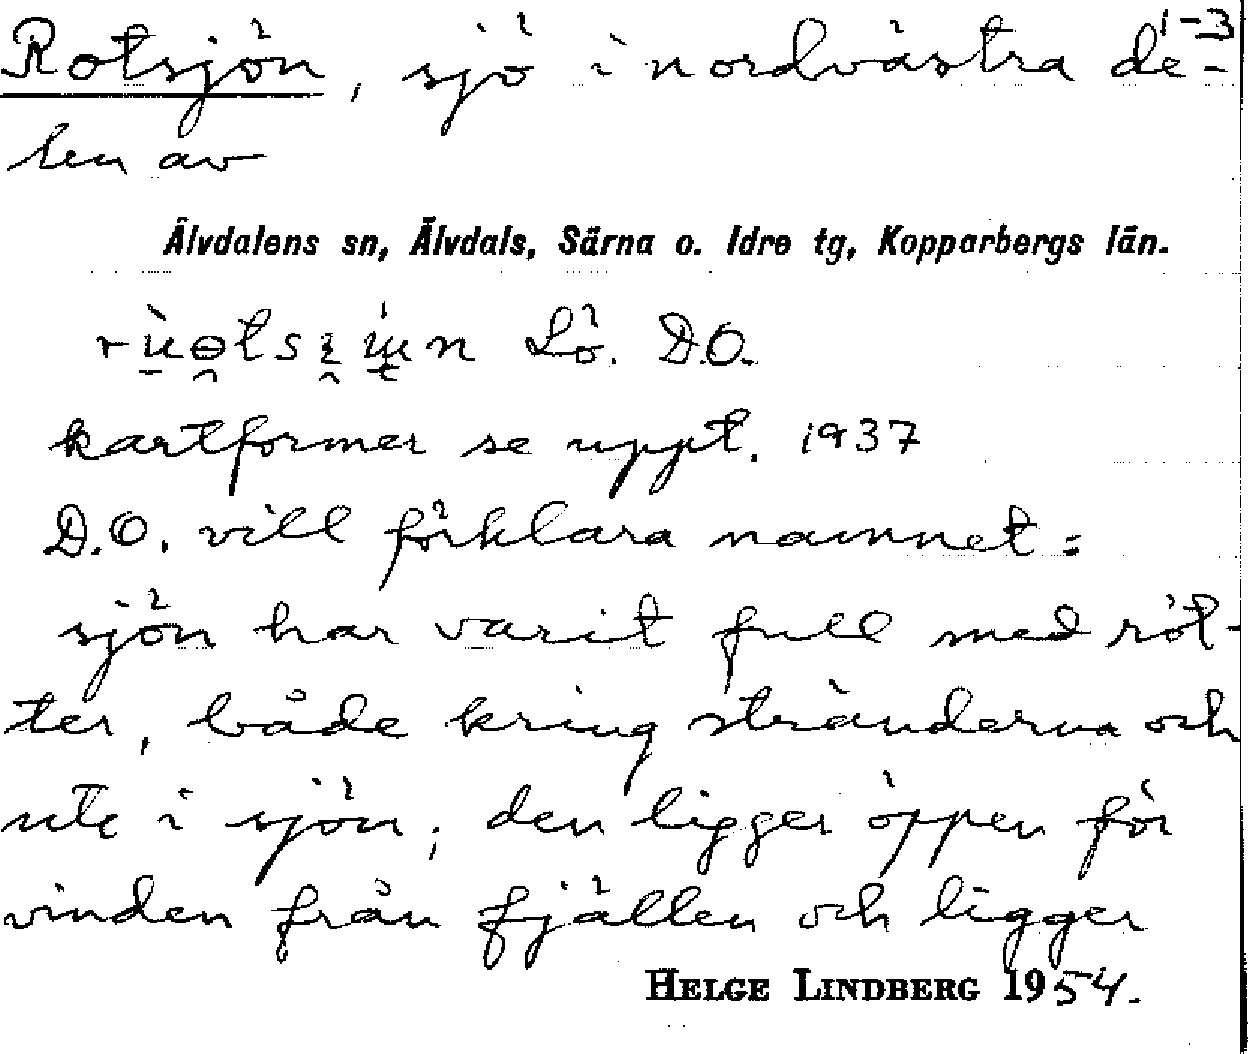 1-3
Rotsjön, sjö i nordvästra de-
len av
Älvdalens sn, Älvdals, Särna o. Idre tg, Kopparbergs län.
Lö. D.O.
kartformer se uppt. 1937
D.O. vill förklara namnet:
sjön har varit full med röt-
ter, både kring stränderna och
ute i sjön; den ligger öppen för
vinden från fjällen och ligger
HELGE LINDBERG 1954.